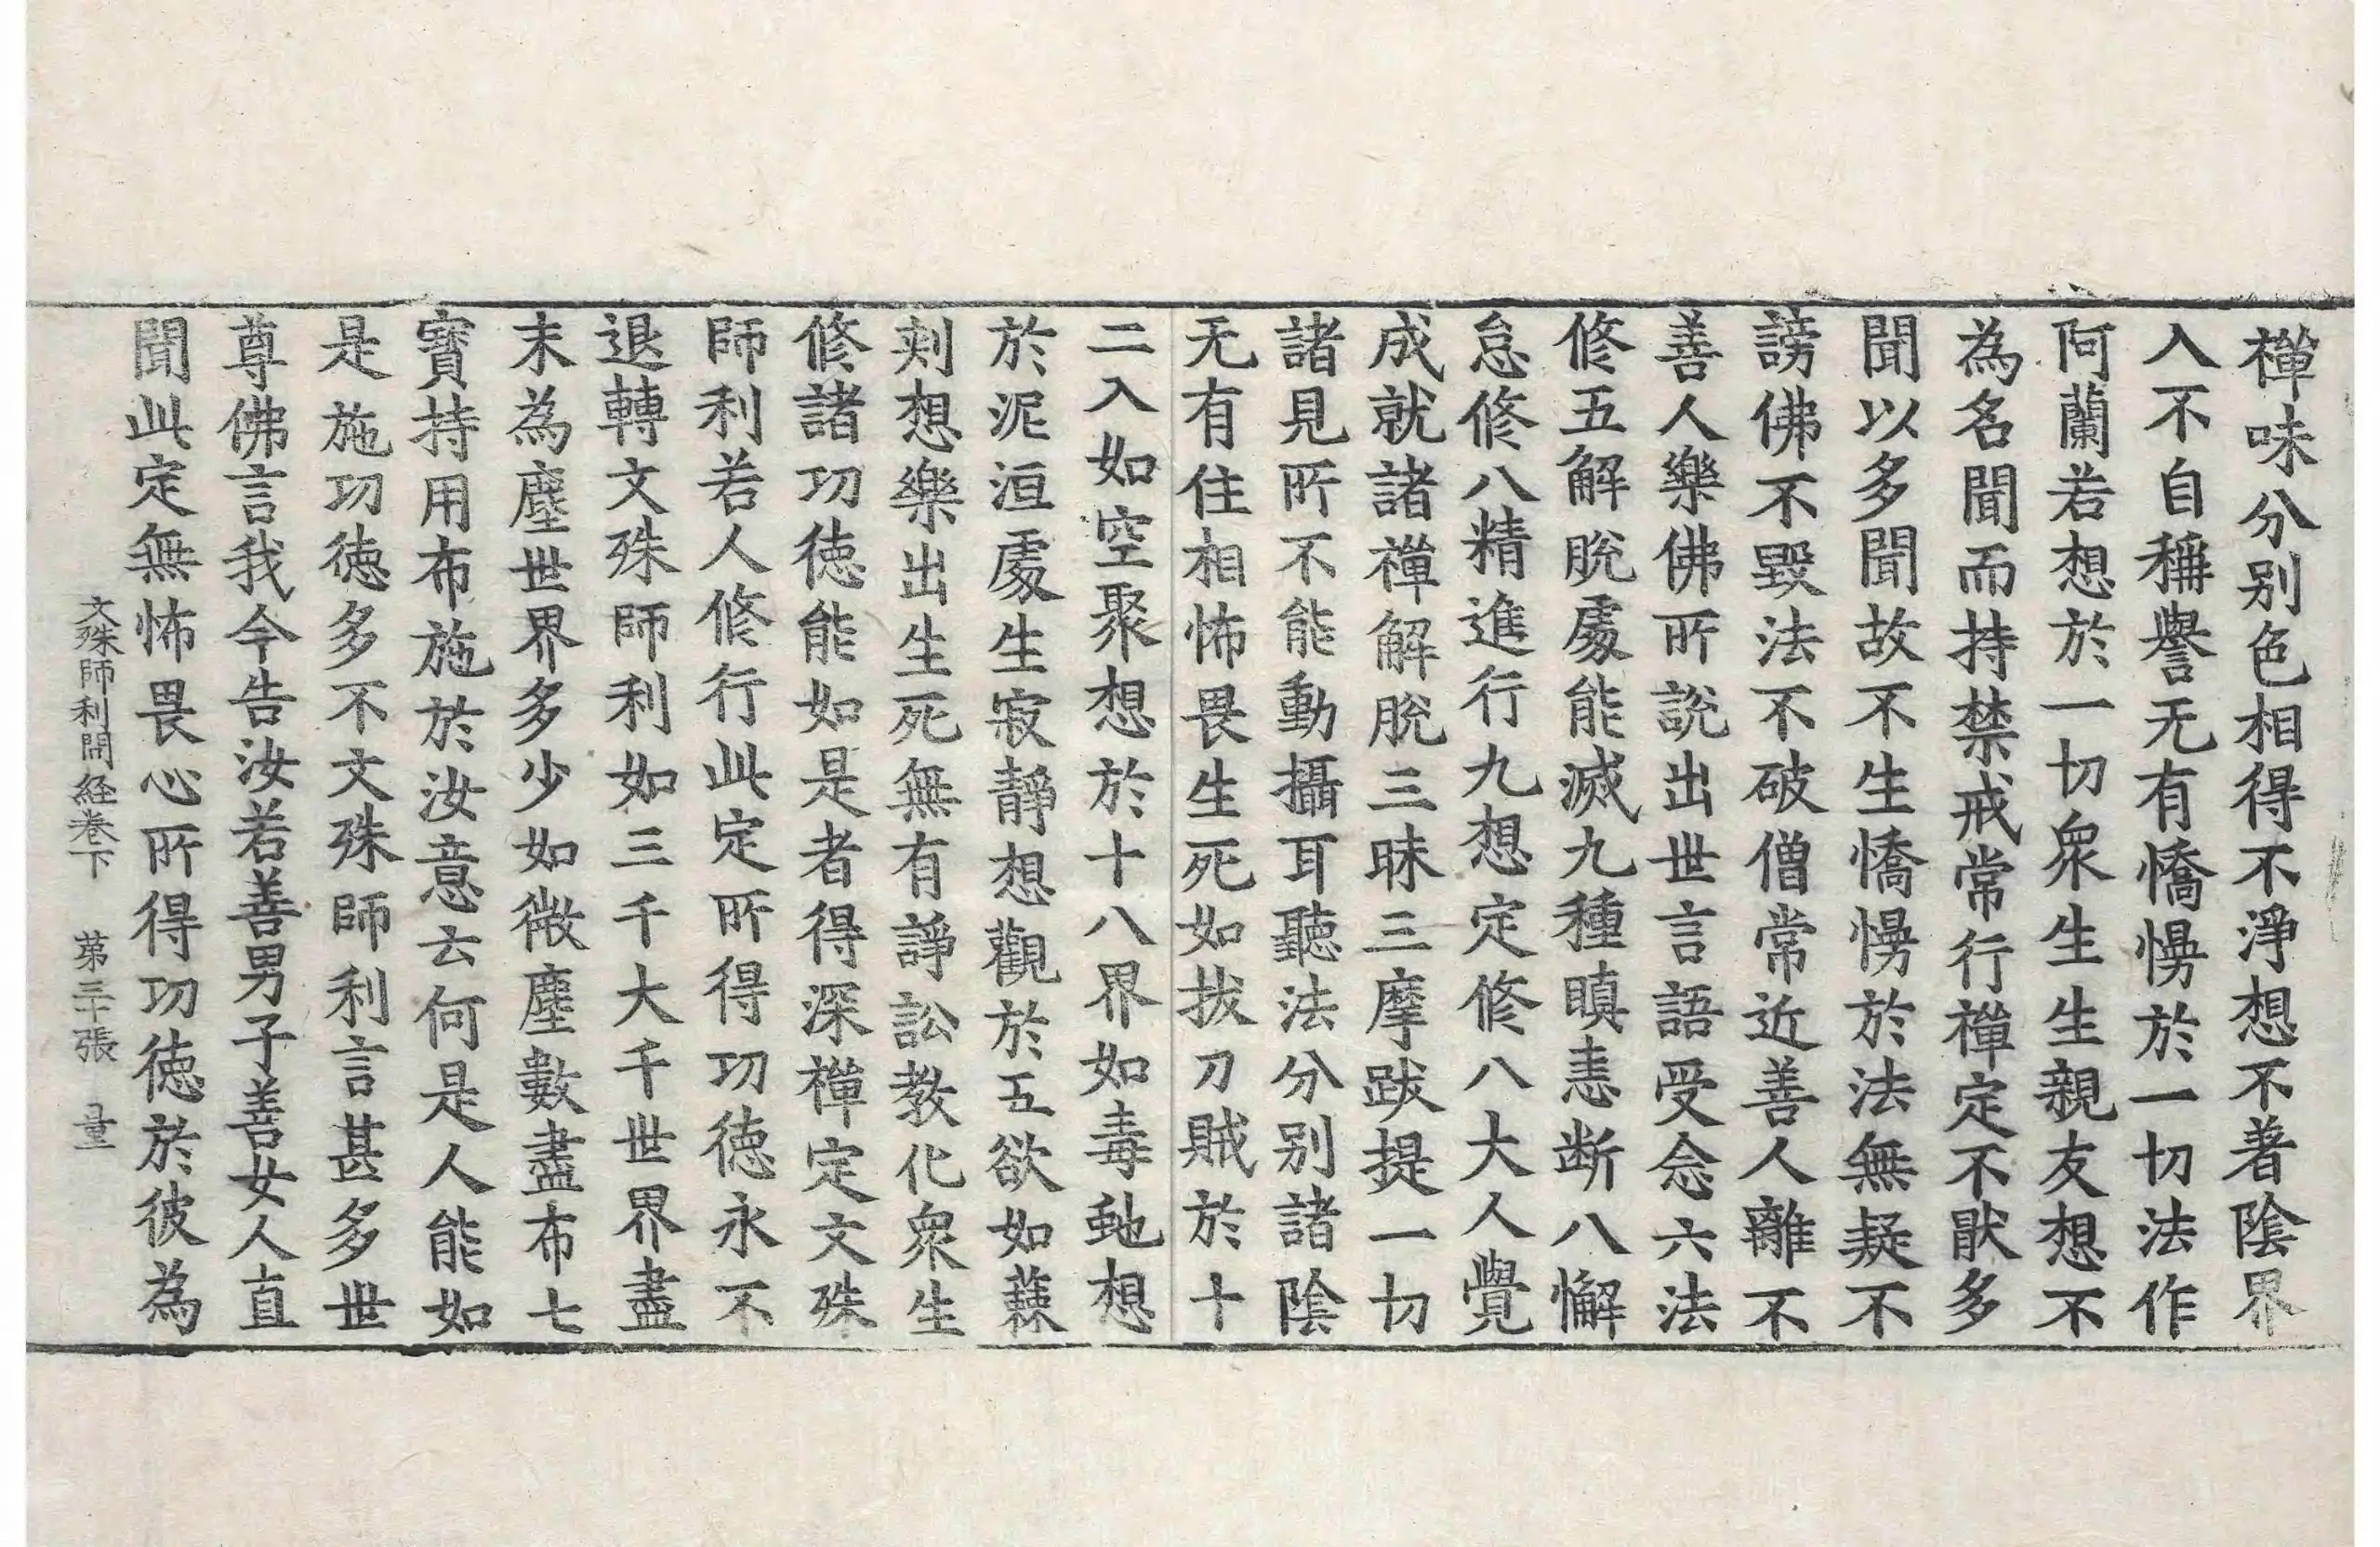 禪味分別色相得不淨想不著陰界
入不自稱譽无有憍慢於一切法作
阿蘭若想於一切衆生生親友想不
為名聞而持禁戒常行禪定不猒多
聞以多聞故不生憍慢於法無疑不
謗佛不毀法不破僧常近善人離不
善人樂佛所說出世言語受念六法
修五解脫處能滅九種瞋恚断八懈
怠修八精進行九想定修八大人覺
成就諸禪解脫三昧三摩跋提一切
諸見所不能動攝耳聽法分別諸陰
无有住相怖畏生死如拔刀賊於十
二入如空聚想於十八界如毒虵想
於泥洹處生寂靜想觀於五欲如蕀
刾想樂出生死無有諍訟教化衆生
修諸功徳能如是者得深禪定文殊
師利若人修行此定所得功徳永不
退轉文殊師利如三千大千世界盡
末為塵世界多少如微塵數盡布七
寳持用布施於汝意云何是人能如
是施功徳多不文殊師利言甚多世
尊佛言我今告汝若善男子善女人直
聞此定無怖畏心所得功徳於彼為
文殊師利問経卷下 苐三十張 量